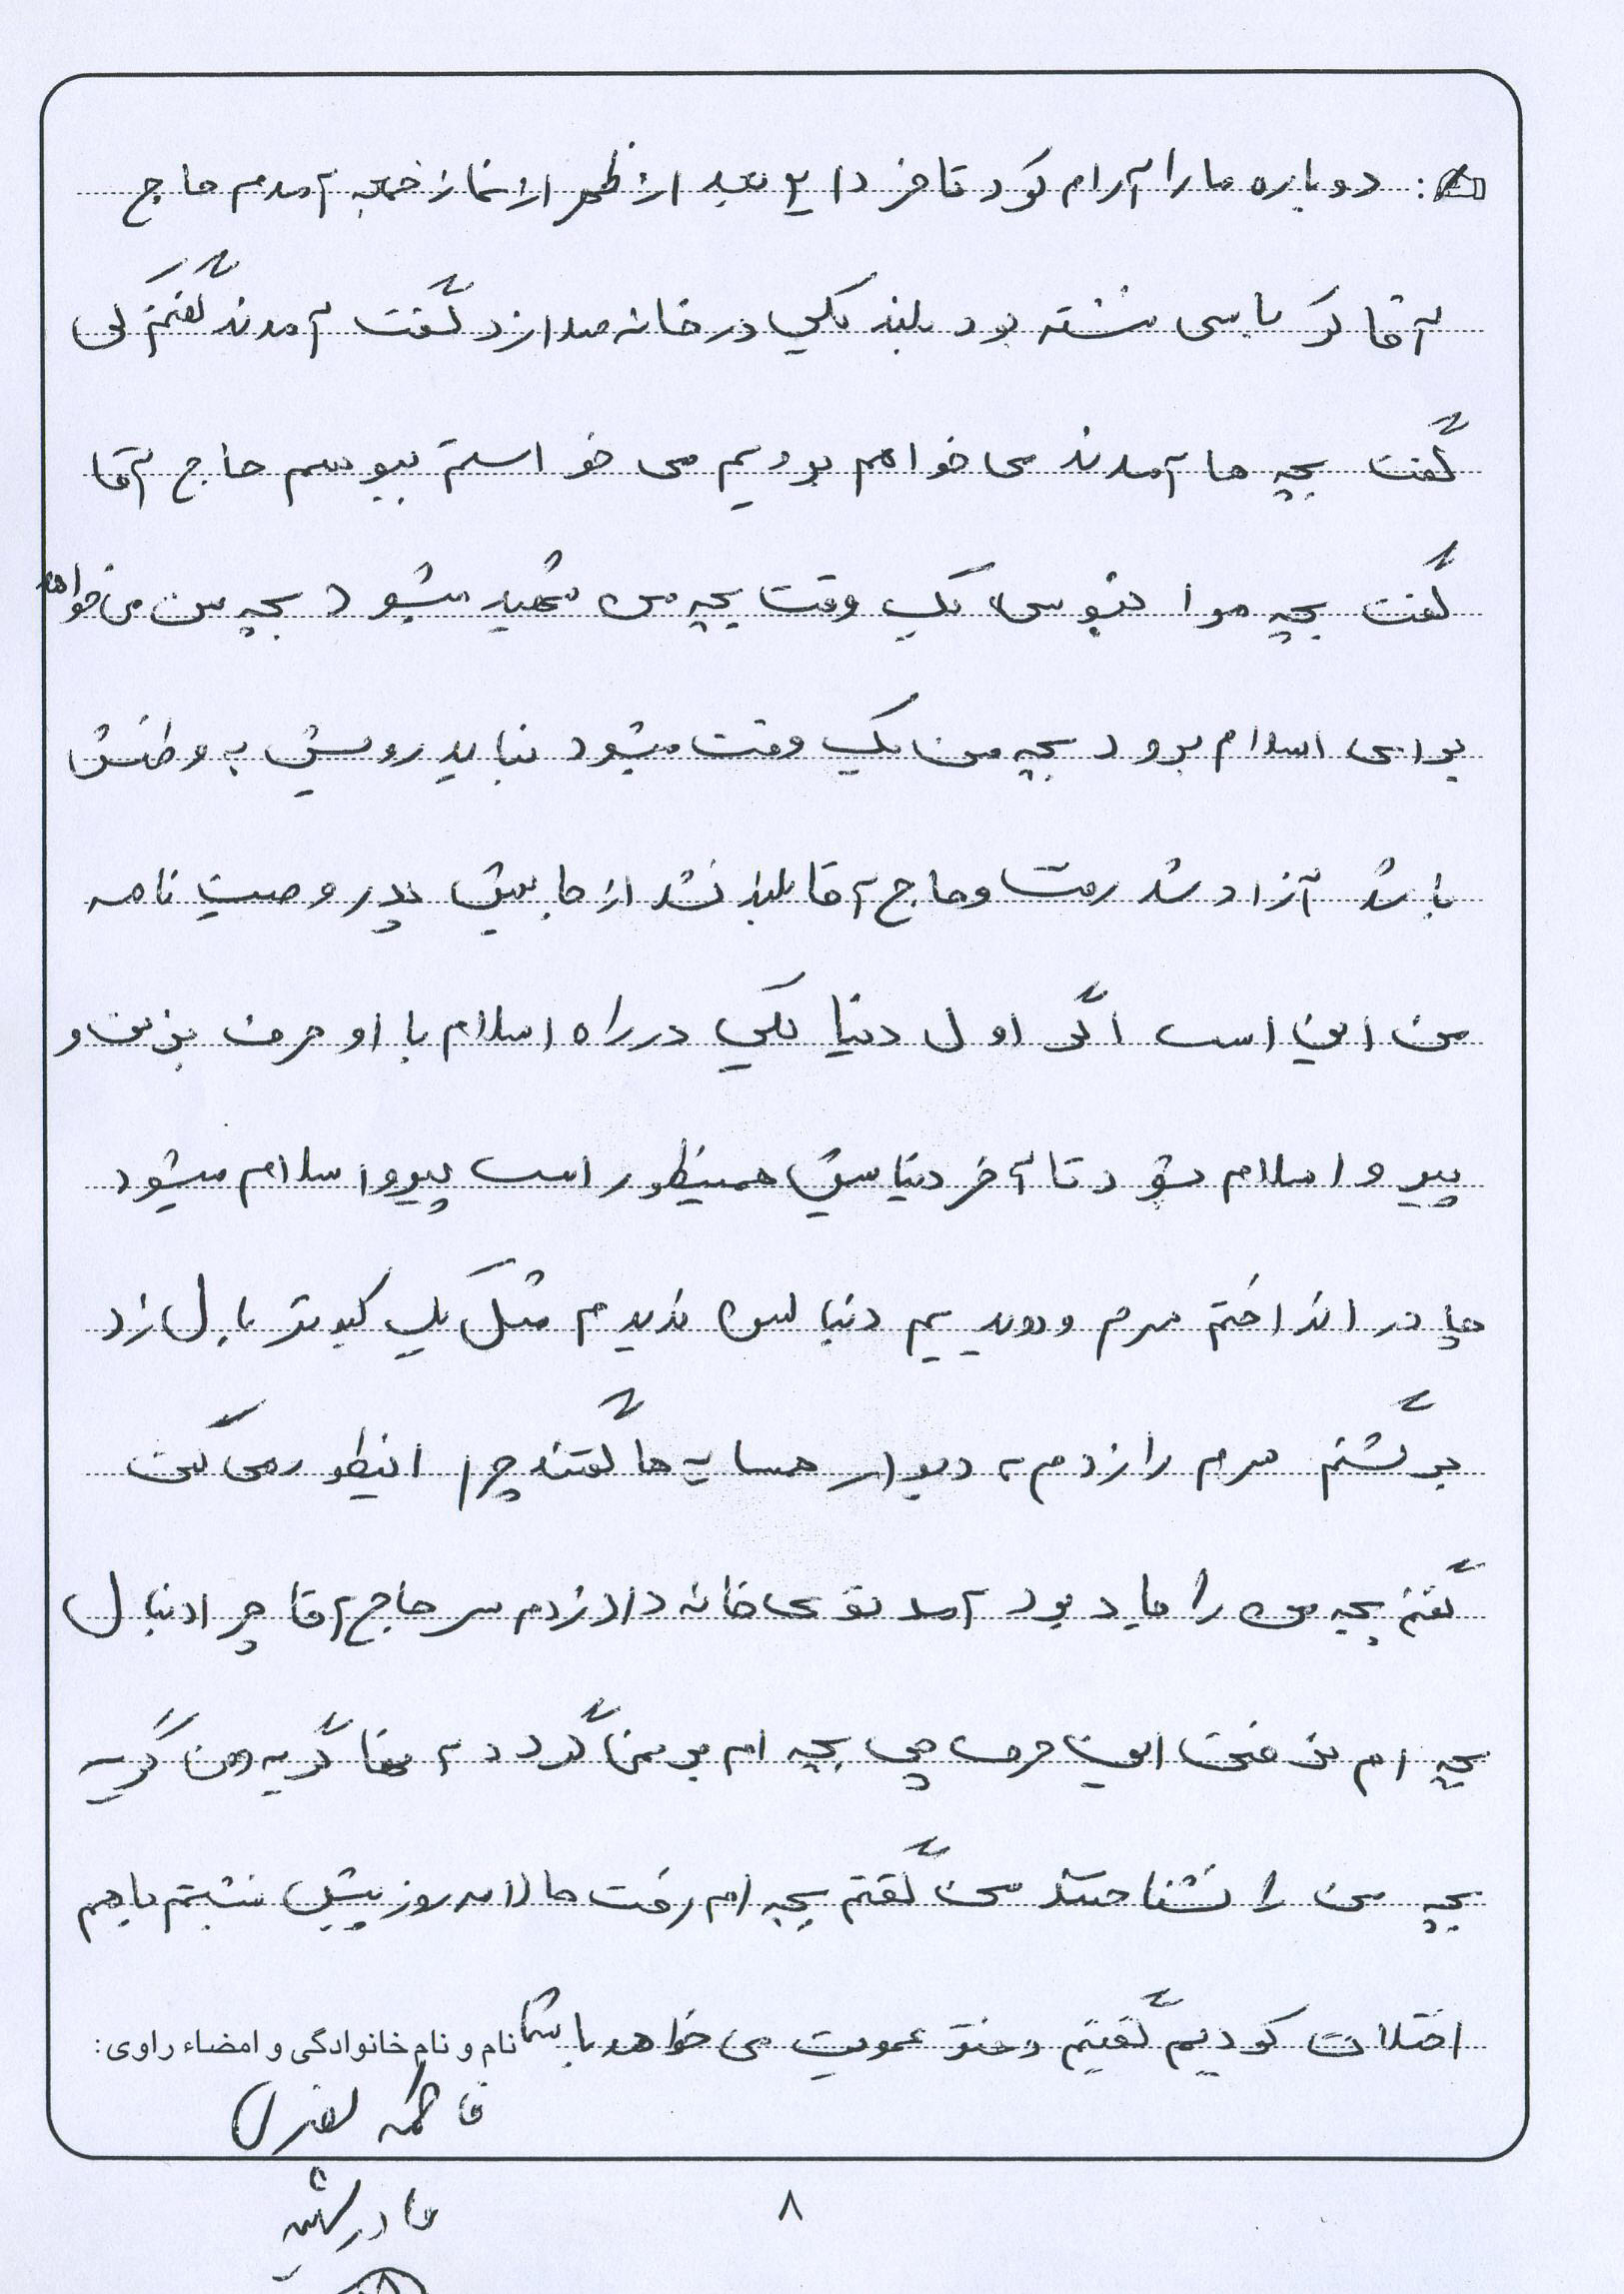 : دوباره ما را آرام کرد تا فردا ۲ بعد از ظهر از نماز جمعه آمدم حاج
آقا کرباسی نشسته بود بلند یکی در خانه صدا زد گفت آمدند گفتم کی
گفت بچه ها آمدند می خواهم برویم می خواستم ببوسم حاج آقا
گفت بچه مرا نبوس یک وقت بچه من شهید میشود بچه من می خواهد
برای اسلام برود بچه من یک وقت میشود نباید رویش به وطنش
باشد آزاد شد رفت و حاج آقا بلند نشد از جایش پدر وصیت نامه
من این است اگر اول دنیا یکی در راه اسلام با او حرف بزنن و
پیرو اسلام شود تا آخر دنیا همینطور است پیرو اسلام میشود
چادر انداختم سرم و دنبالش ندیدم مثل یک کبوتر بال زد
برگشتم سرم را زدم به دیوار همسایه ها گفتند چرا اینطور می کنی
گفتم بچه من را یاد بود آمد توی خانه داد زدم سر حاج آقا چرا دنبال
بچه ام این حرف چی بچه ام بر نمی گردد به بنا گریه من گریه
بچه من را نشناختند من گفتم بچه ام رفت حالا سه روز پیش نشستم باهم
اختلات کردیم گفتیم دختر عمویت می خواهد با شما
نام و نام خانوادگی و امضاء راوی:
فاطمه
مادر شهید
۸